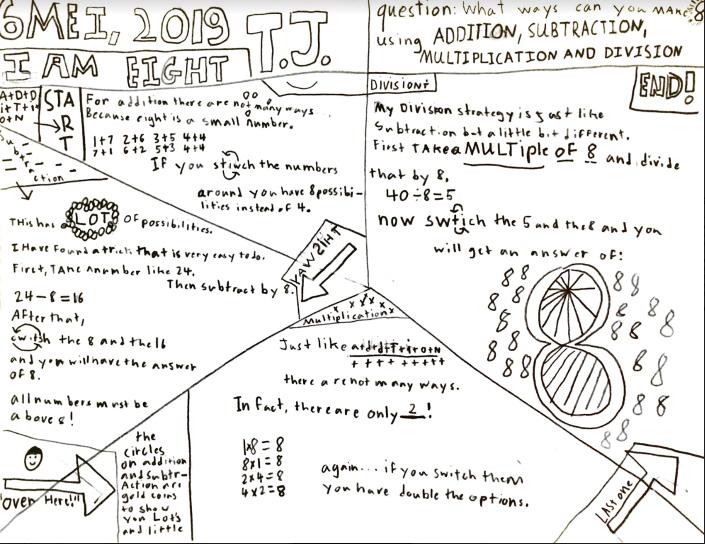 6MEI, 2019
T.J.
I AM EIGHT
question: What ways can you MAKE 8
using ADDITION, SUBTRACTION,
MULTIPLICATION AND DIVISION
A+D+D
i+T+i+
O+N
STA
RT
For addition there are not many ways...
Because eight is a small number.
1+7 2+6 3+5 4+4
7+1 6+2 5+3 4+4
If you stiwch the numbers
around you have 8 possibi-
lities instead of 4.
Su
btr
ction
THis has LOT OF possibilities.
I Have found a trick that is very easy to do.
First, TAke a number like 24.
Then subtract by 8.
24-8=16
After that,
switsh the 8 and the 16
and you will have the answer
of 8.
all numbers must be
above 8!
"over Here!"
the
circles
on addition
and subtr-
Action are
gold coins
to show
you Lots
and little
THiS WAY
Multiplication
Just like a+d+d+i+t+i+o+n
+ + + + + + + +
there are not many ways.
In fact, there are only 2!
1x8=8
8x1=8
2x4=8
4x2=8
again... if you switch them
you have double the options.
DIVISION÷
END!
My Division strategy is just like
Subtraction but a little bit different.
First TAke a MULTiple of 8 and divide
that by 8.
40÷8=5
now swtich the 5 and the 8 and you
will get an answer of:
88 88
88 88
88 88
88 88
88 88
88
LAst one